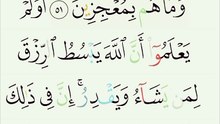 وَمَا هُم بِمُعْجِزِينَ ٥١ أَوَلَمْ
يَعْلَمُوٓا۟ أَنَّ ٱللَّهَ يَبْسُطُ ٱلرِّزْقَ
لِمَن يَشَآءُ وَيَقْدِرُ ۚ إِنَّ فِى ذَٰلِكَ